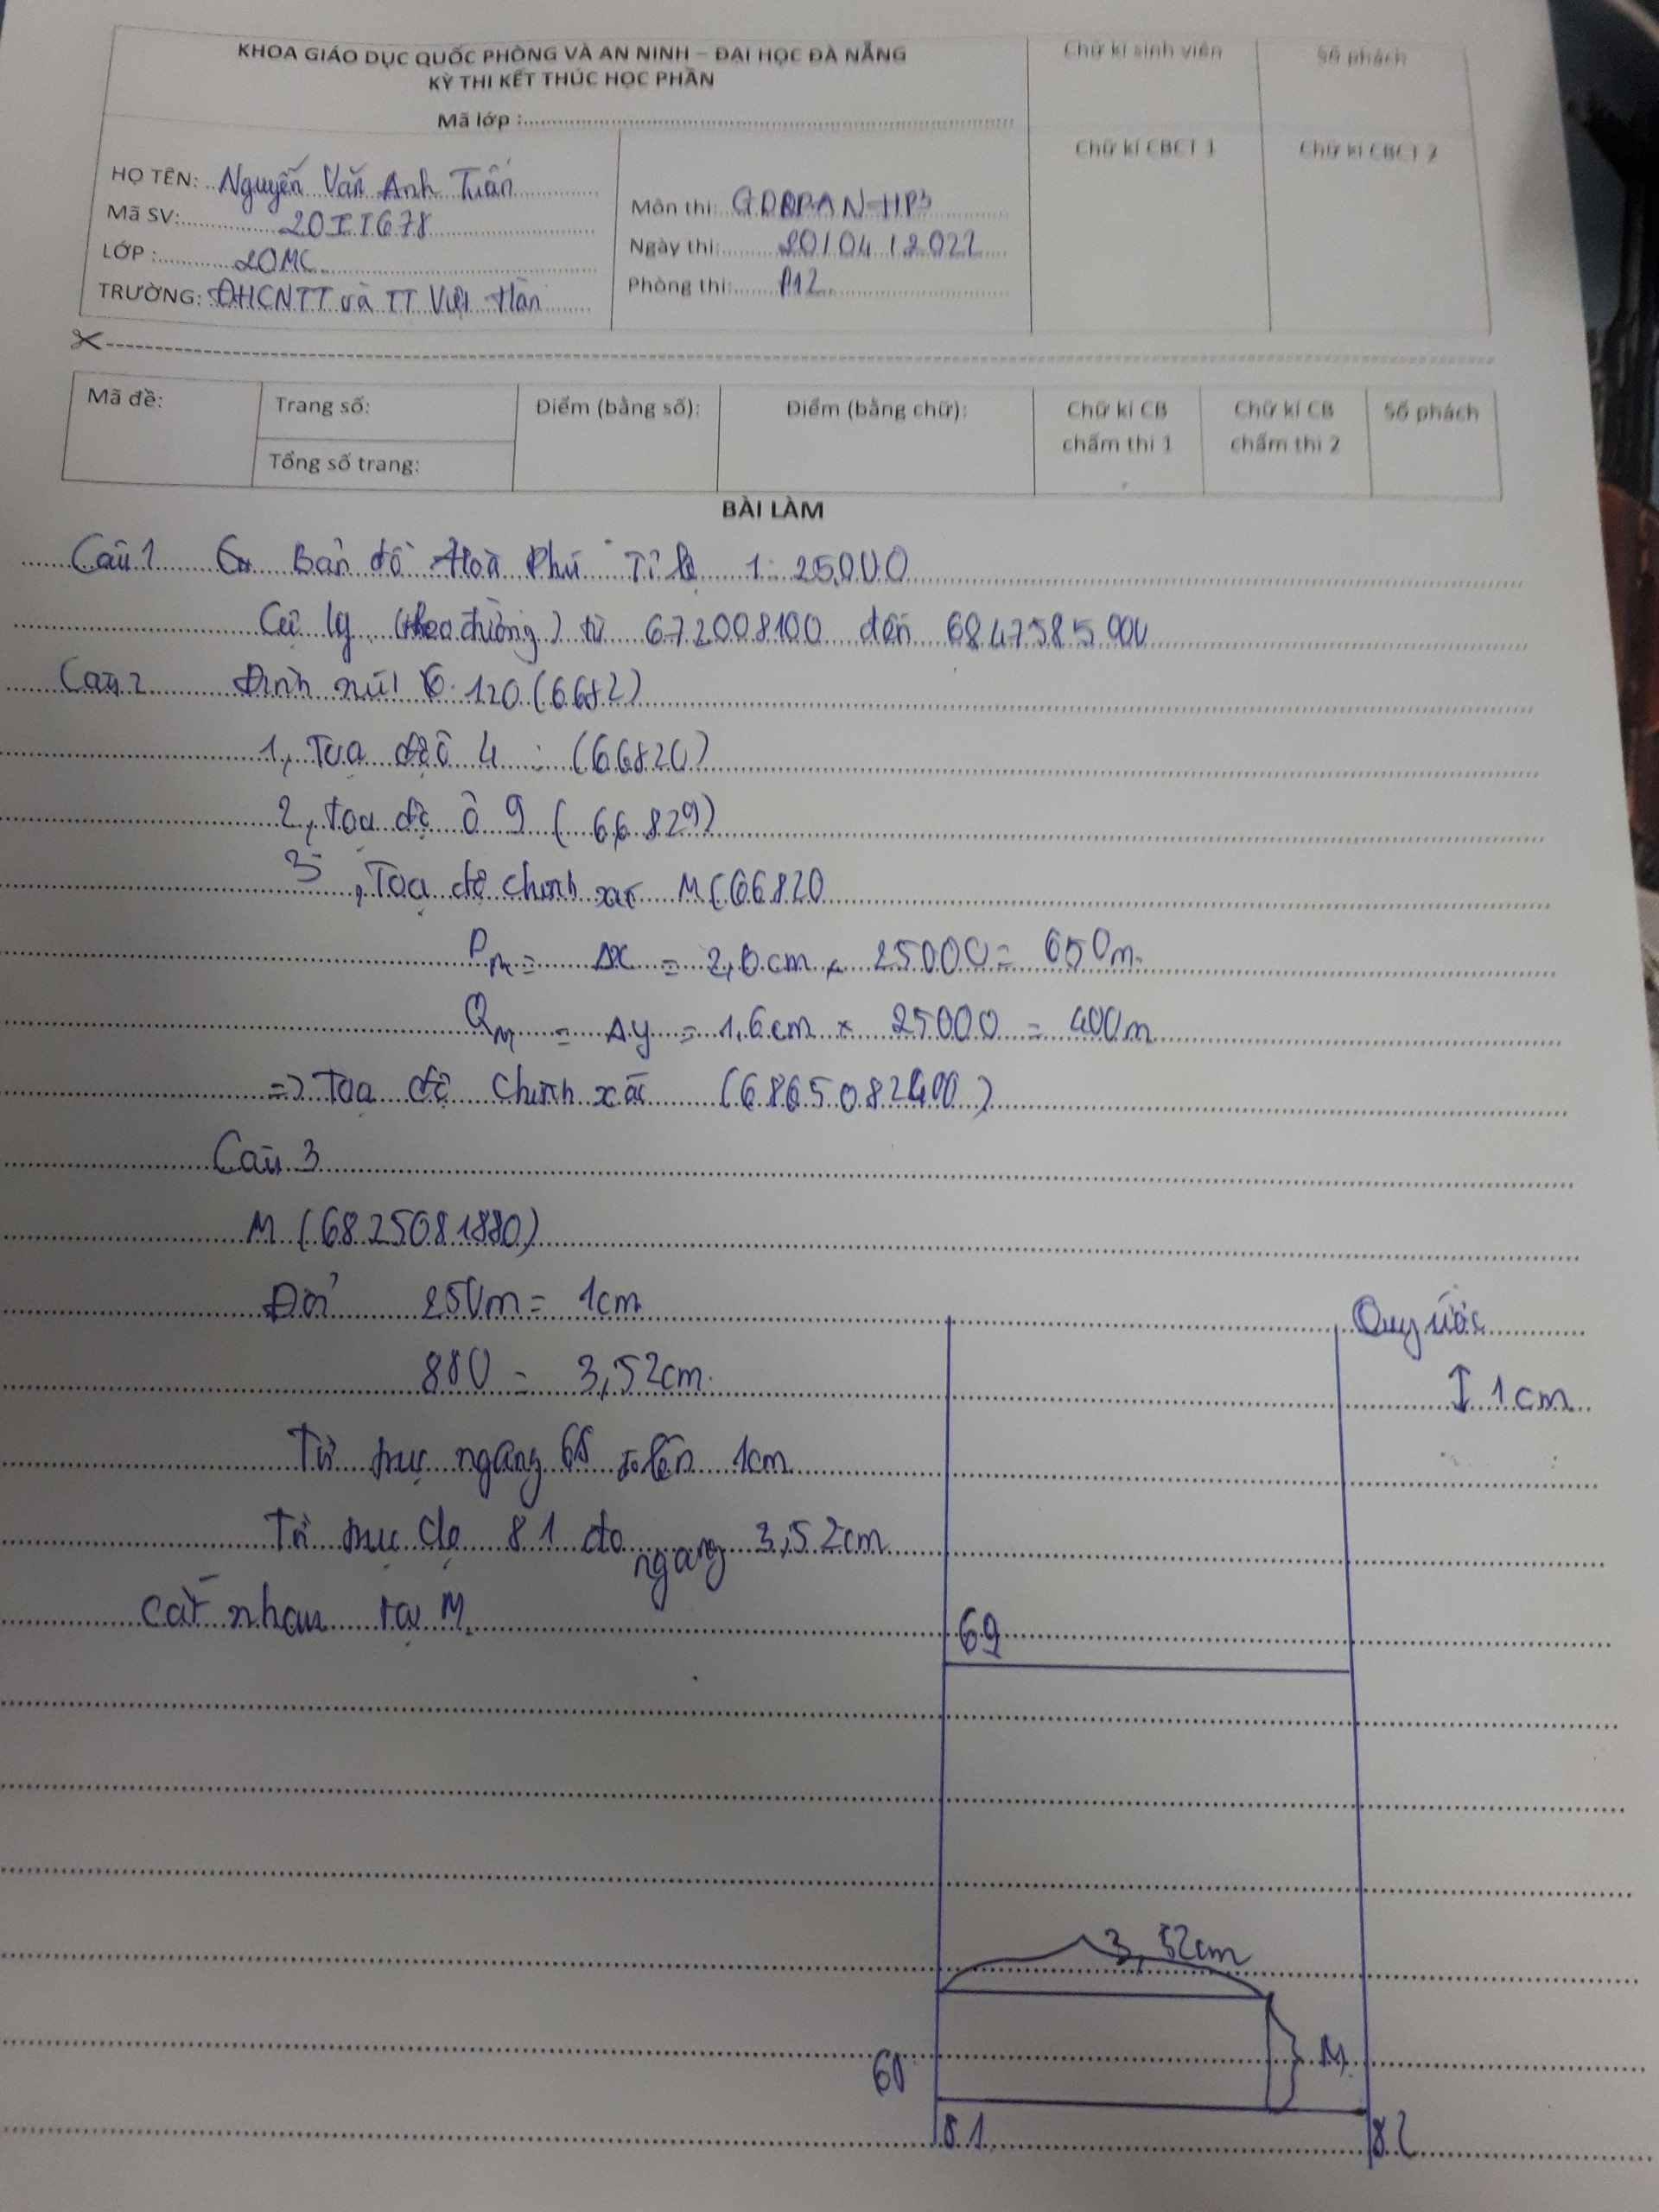 KHOA GIÁO DỤC QUỐC PHÒNG VÀ AN NINH – ĐẠI HỌC ĐÀ NẴNG
KỲ THI KẾT THÚC HỌC PHẦN
Mã lớp :
Chữ kí sinh viên
Số phách
Chữ kí CBCT 1
Chữ kí CBCT 2
HỌ TÊN: Nguyễn Văn Anh Tuấn
Mã SV: 20II678
LỚP : 20MC
TRƯỜNG: ĐHCNTT và TT Việt Hàn
Môn thi: GDQPAN-HP3
Ngày thi: 20/04/2022
Phòng thi: P12
Mã đề:
Trang số:
Tổng số trang:
Điểm (bằng số):
Điểm (bằng chữ):
Chữ kí CB chấm thi 1
Chữ kí CB chấm thi 2
Số phách
BÀI LÀM
Câu 1 Bản đồ Hoà Phú Tỉ lệ 1: 25000
Cự ly (theo đường) từ 672008100 đến 6847585900
Câu 2 Đỉnh núi 120 (6682)
1, Toạ độ ô 4 : (66820)
2, Toạ độ ô 9 (66829)
3, Toạ độ chính xác M(66820
Pm = Δx = 2,6cm x 25000 = 650m
Qm = Δy = 1,6cm x 25000 = 400m
=> Toạ độ chính xác (6865082400)
Câu 3
M (6825081880)
Đổi 250m = 1cm
880 = 3,52cm
Từ trục ngang 68 đo lên 1cm
Từ trục dọ 81 đo ngang 3,52cm
cắt nhau tại M
Quy ước
↕ 1cm
69
3,52cm
M
68
81
82